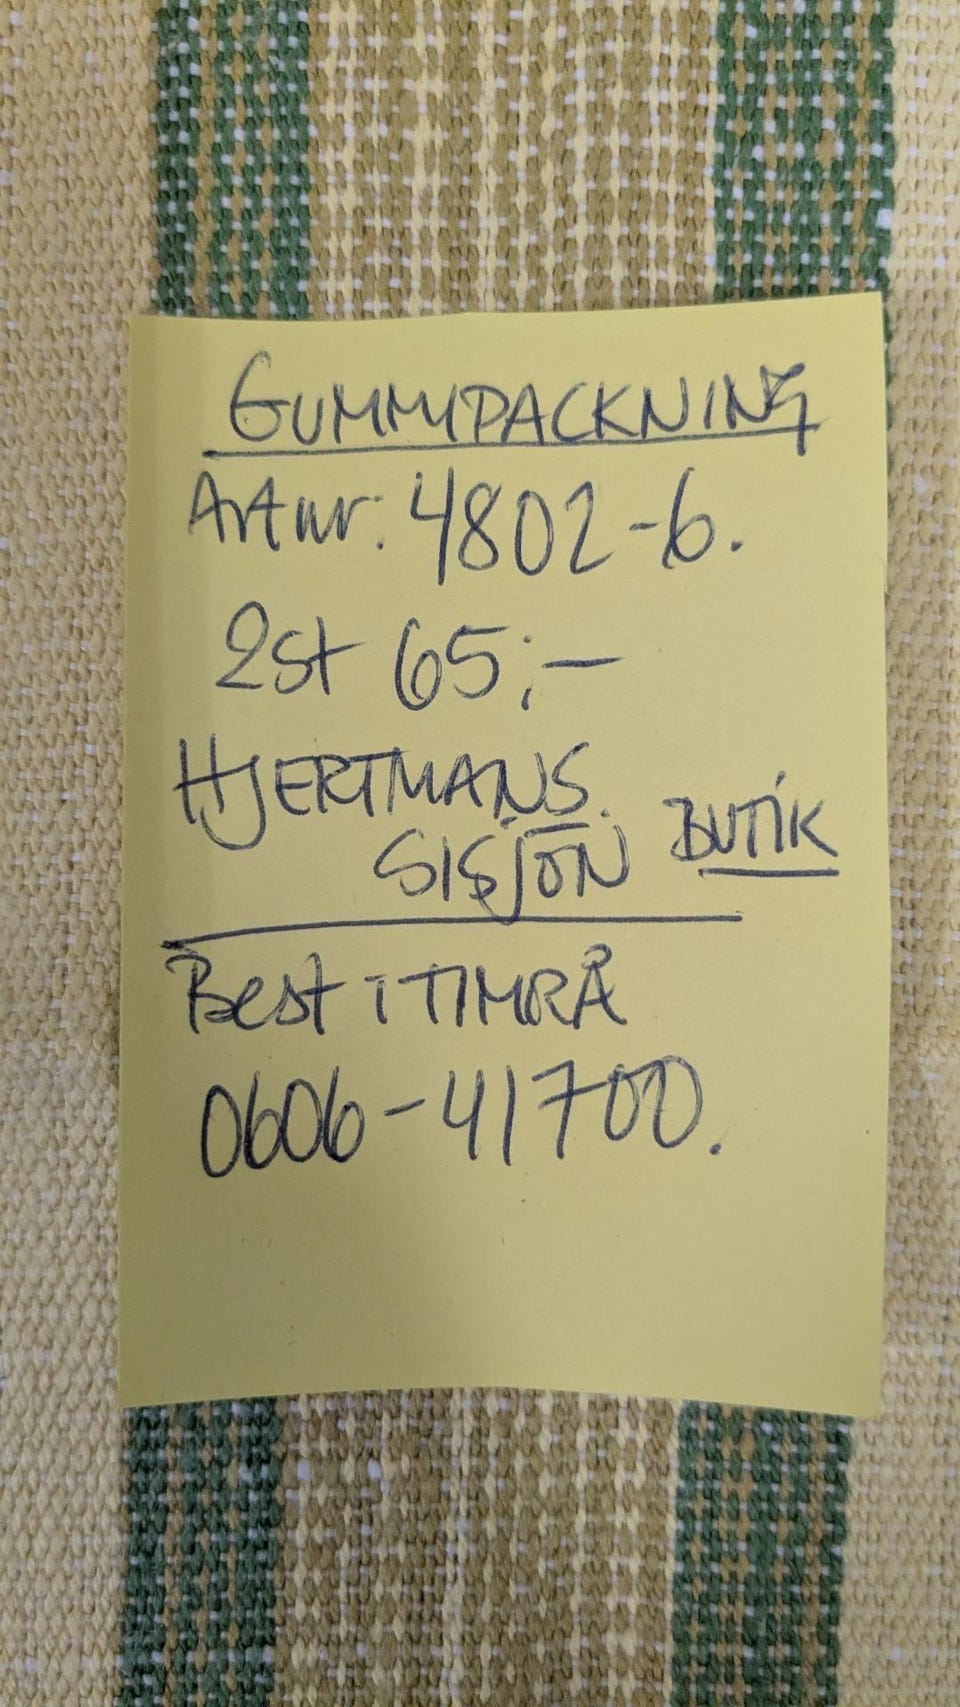 GUMMIPACKNING
Art nr: 4802-6.
2st 65:-
HJERTMANS.
SISJÖN BUTIK
Best i TIMRÅ
0606-41700.